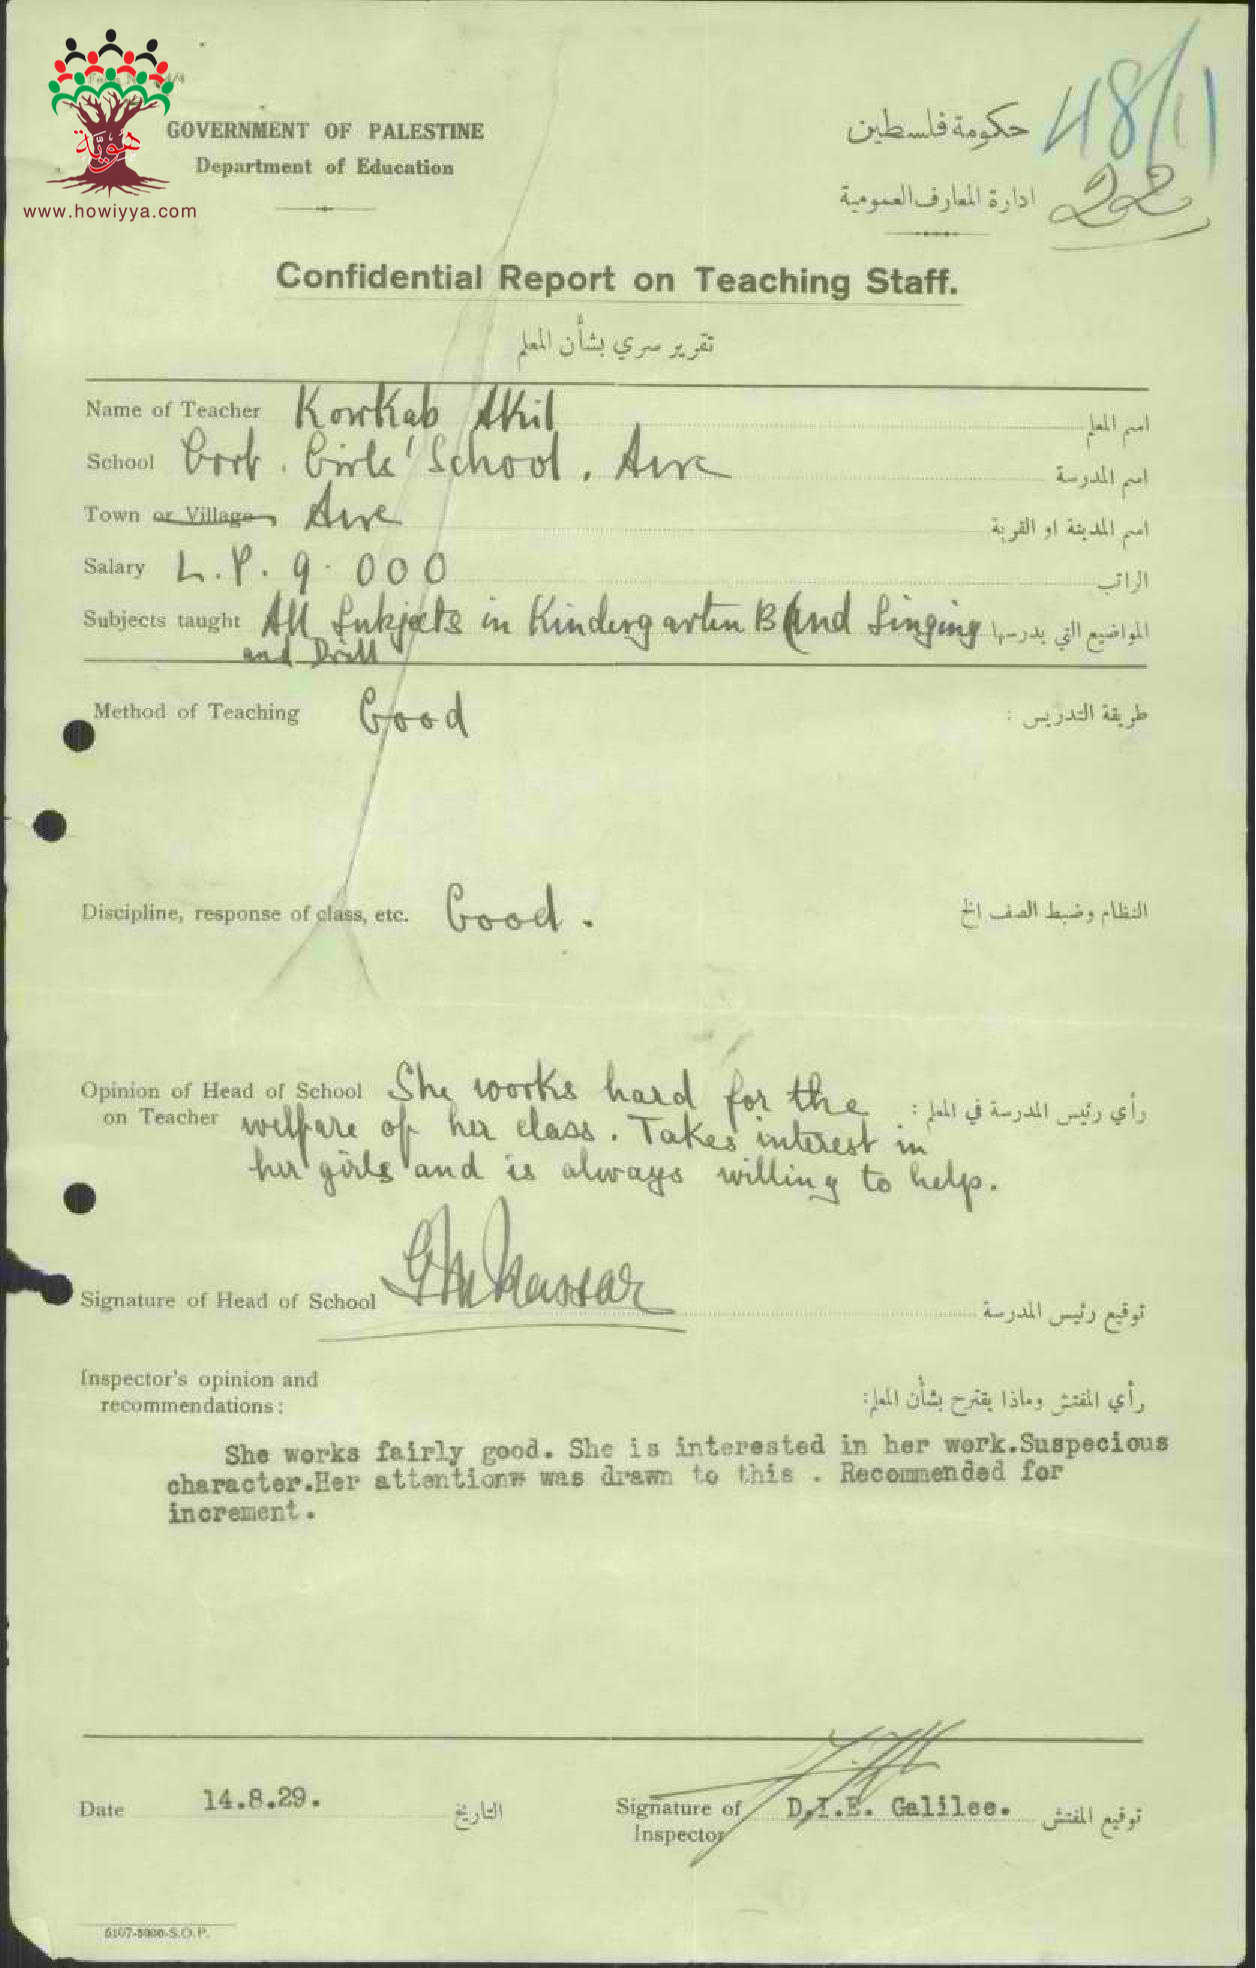 هوية
www.howiyya.com
GOVERNMENT OF PALESTINE
Department of Education
حكومة فلسطين
ادارة المعارف العمومية
48/11
22
Confidential Report on Teaching Staff.
تقرير سري بشأن المعلم
Name of Teacher Kowkab Akil اسم المعلم
School Govt. Girls' School, Acre اسم المدرسة
Town or Village Acre اسم المدينة او القرية
Salary L.P. 9.000 الراتب
Subjects taught All Subjects in Kindergarten B and Singing المواضيع التي يدرسها
and Drill
Method of Teaching Good طريقة التدريس :
Discipline, response of class, etc. Good. النظام وضبط الصف الخ
Opinion of Head of School She works hard for the رأي رئيس المدرسة في المعلم :
on Teacher welfare of her class. Takes interest in
her girls and is always willing to help.
Signature of Head of School Nassar توقيع رئيس المدرسة
Inspector's opinion and رأي المفتش وماذا يقترح بشأن المعلم:
recommendations:
She works fairly good. She is interested in her work.Suspecious
character.Her attention was drawn to this . Recommended for
increment.
Date 14.8.29. التاريخ Signature of D.I.E. Galilee. توقيع المفتش
Inspector